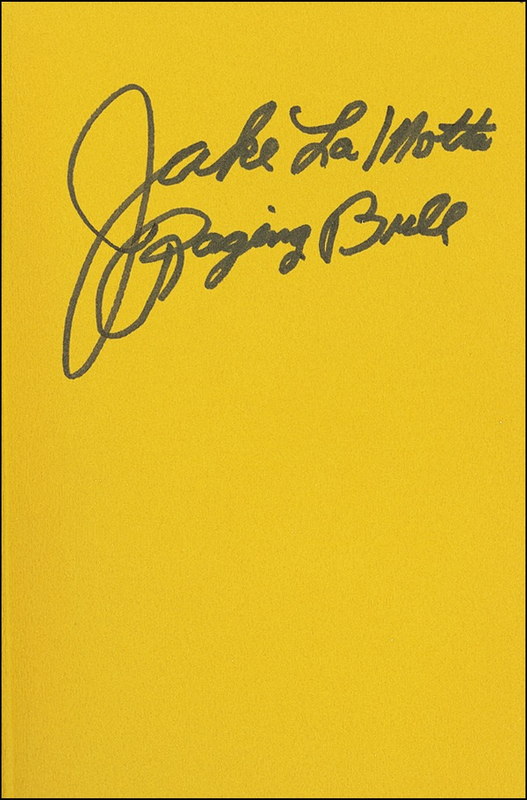 Jake La Motta
Raging Bull